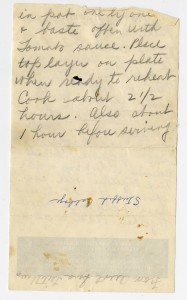 in pot one by one
& baste often with
Tomato sauce. Place
top layer on plate
when ready to reheat
Cook about 2 1/2
hours. Also about
1 hour before serving